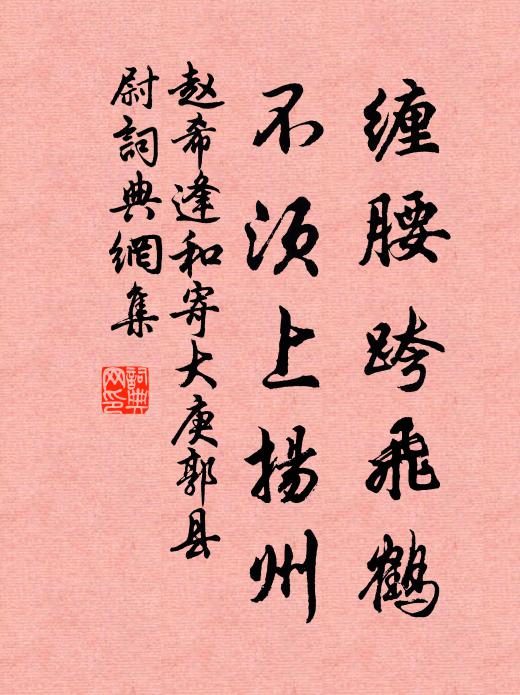 缠腰跨飛鶴
不须上揚州
赵希逢和寄大庾郭县
尉詞典網集
詞典
网印